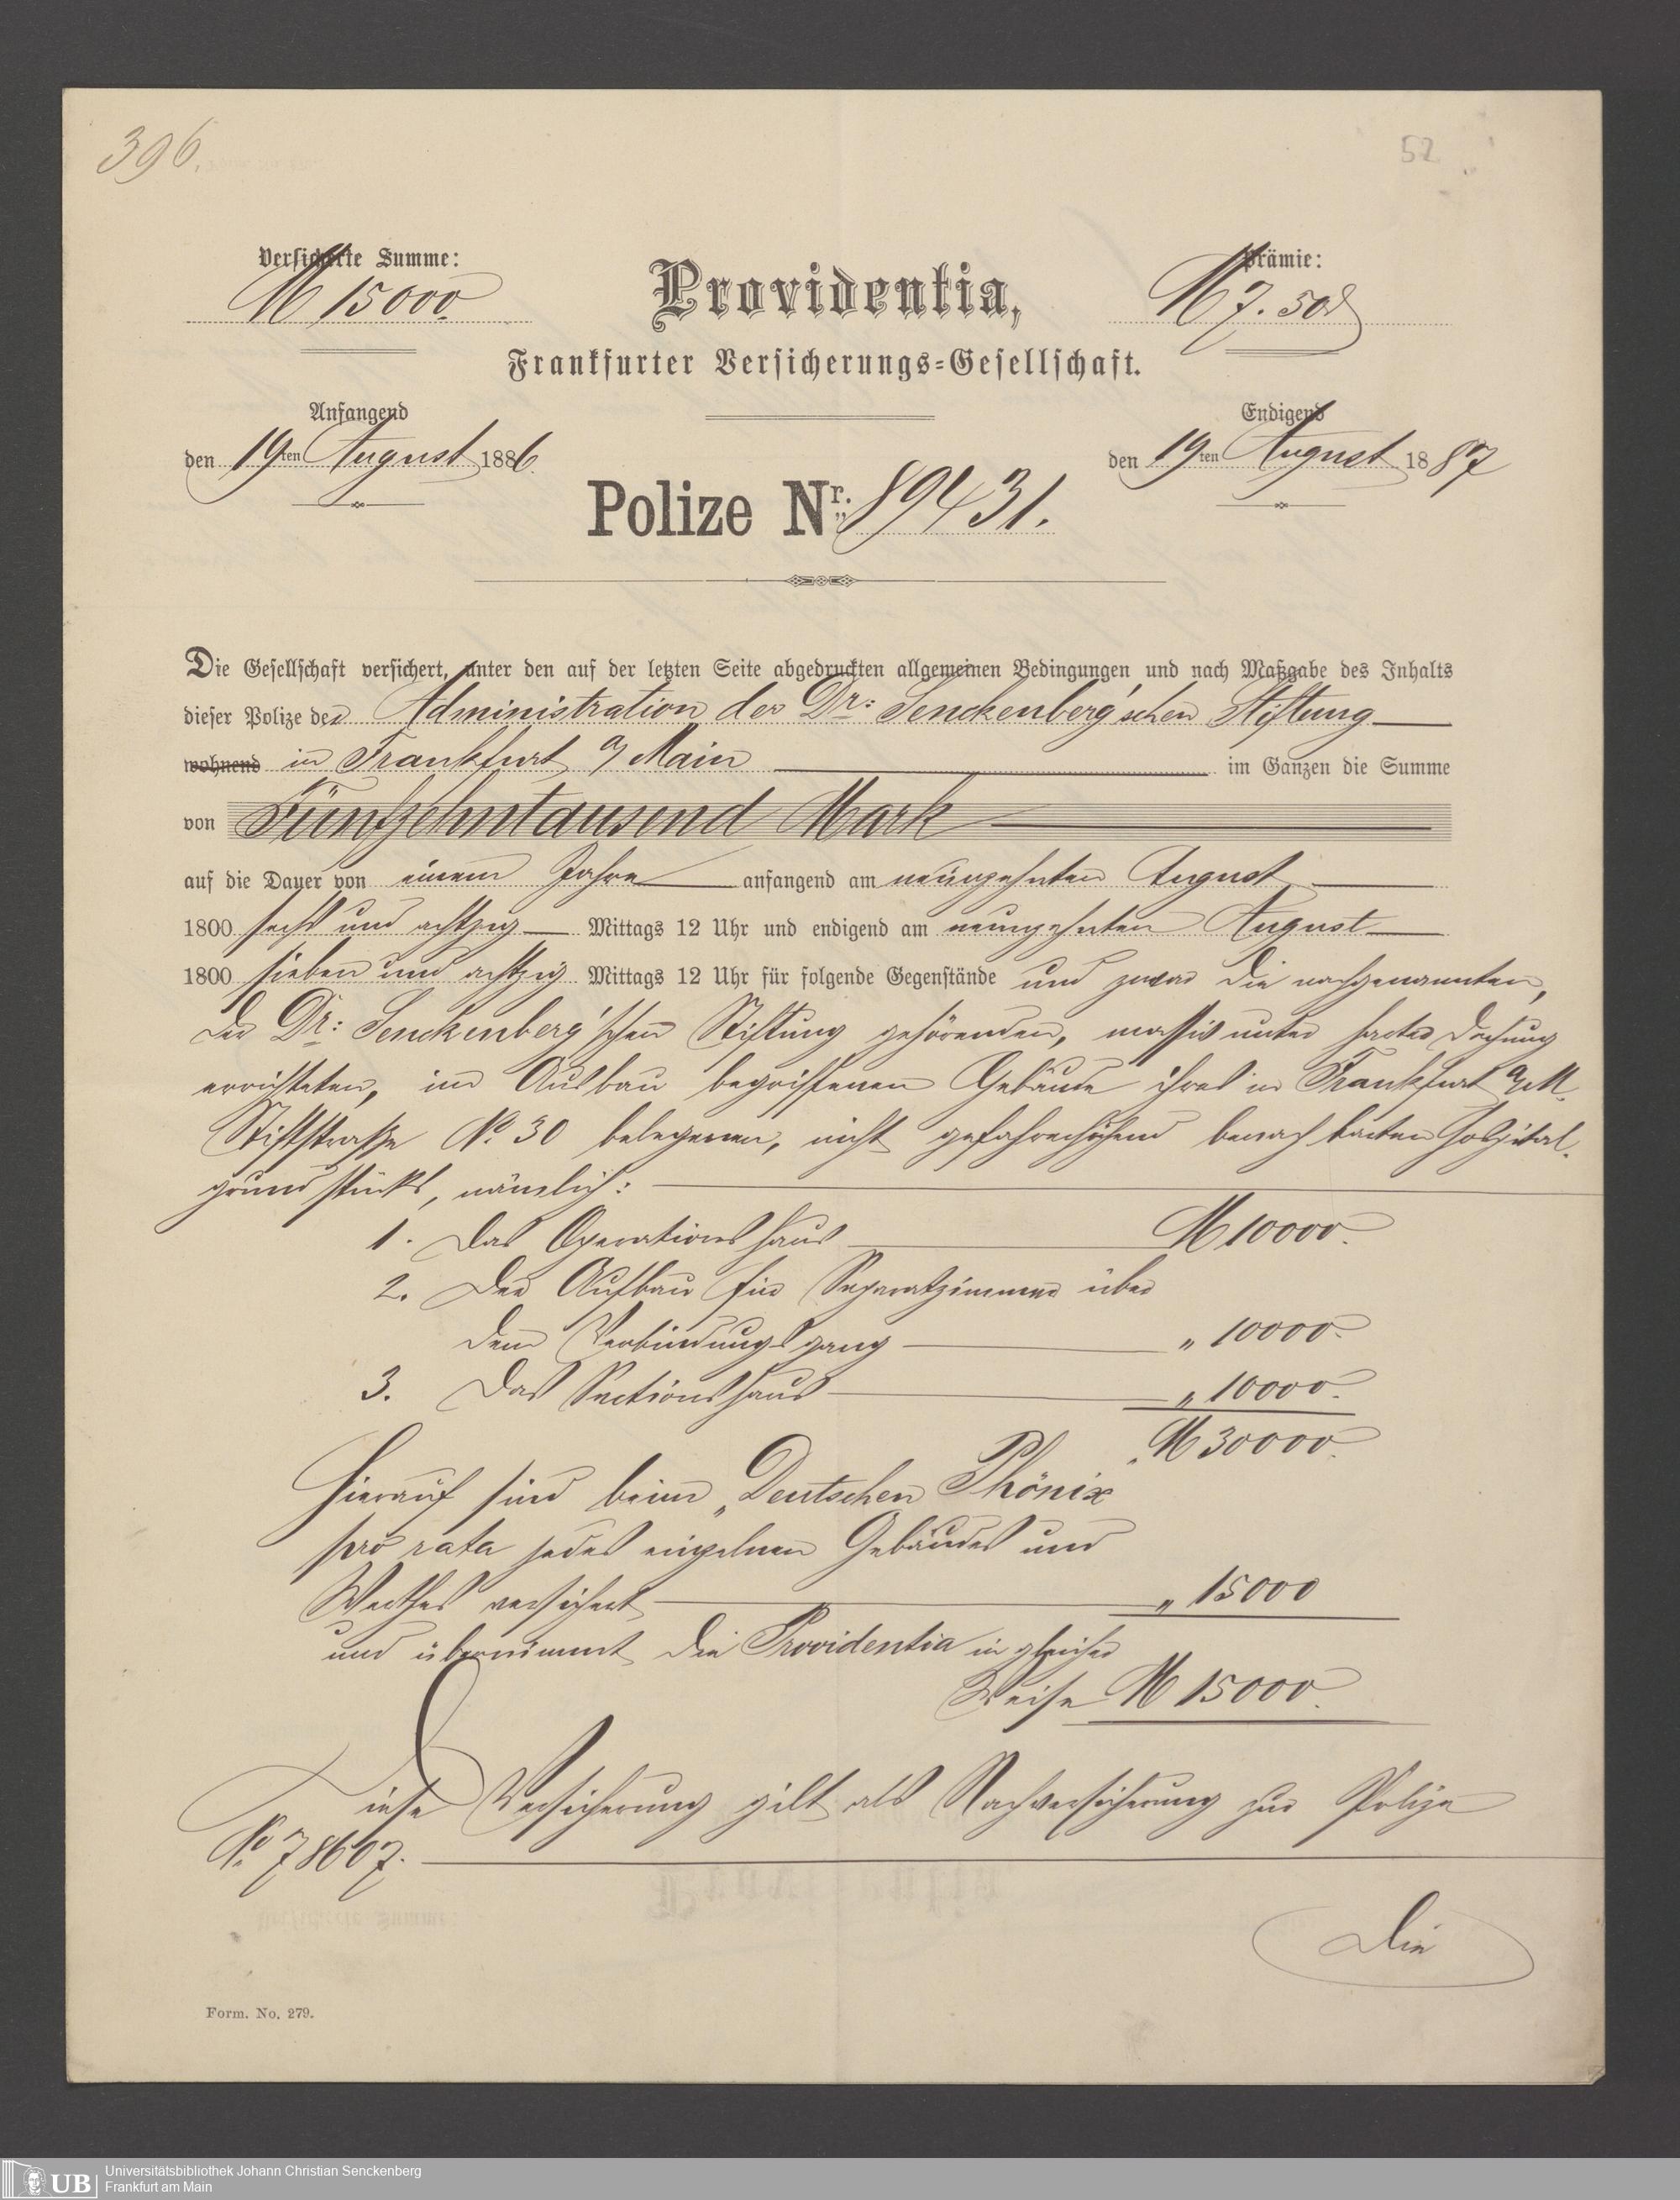 396.
52
Versicherte Summe:
M 15000.
Providentia,
Prämie:
M 7. 50 ₰
Frankfurter Versicherungs-Gesellschaft.
Anfangend
den 19ten August 1886.
Endigend
den 19ten August 1887
Polize Nr. 89431.
Die Gesellschaft versichert, unter den auf der letzten Seite abgedruckten allgemeinen Bedingungen und nach Maßgabe des Inhalts
dieser Polize der Administration der Dr: Senckenberg'schen Stiftung
wohnend in Frankfurt a/ Main im Ganzen die Summe
von Fünfzehntausend Mark
auf die Dauer von einem Jahre anfangend am neunzehnten August
1800 sechs und achtzig Mittags 12 Uhr und endigend am neunzehnten August
1800 sieben und achtzig Mittags 12 Uhr für folgende Gegenstände und zwar die nachgenannten,
der Dr: Senckenberg'schen Stiftung gehörenden, massiv unter harter Dachung
errichteten, im Ausbau begriffenen Gebäude ihres in Frankfurt a/M.
Stiftstraße No. 30 belegenen, nicht gefahrerhöhend benachbarten Hospital-
grundstücks, nämlich:
1. Das Operationshaus M 10000.
2. Der Aufbau für Separatzimmer über
dem Verbindungsgang „ 10000.
3. Das Sectionshaus „ 10000.
M 30000.
Hierauf sind beim „Deutschen Phönix
pro rata jedes einzelnen Gebäudes und
Werthes versichert „ 15000
und übernimmt die Providentia in gleicher
Weise M 15000.
Diese Versicherung gilt als Nachversicherung zur Polize
No. 78607.
Die
Form. No. 279.
UB
Universitätsbibliothek Johann Christian Senckenberg
Frankfurt am Main